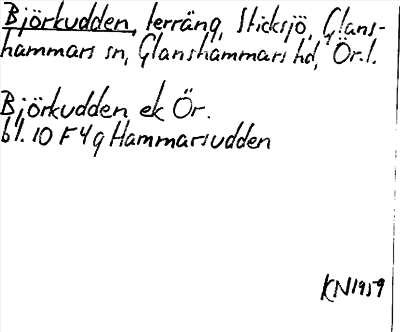 Björkudden, terräng, Sticksjö, Glans-
hammars sn, Glanshammars hd, Ör. l.
Björkudden ek Ör.
bl. 10 F 4 g Hammarsudden
KN 1959